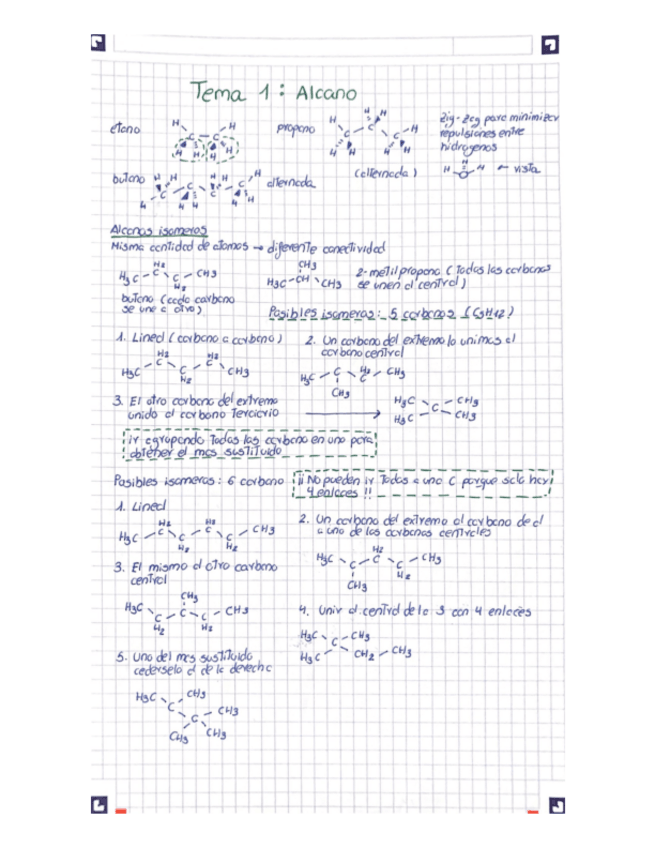 Tema 1: Alcano
etano
propano
(alternada)
zig-zag para minimizar
repulsiones entre
hidrogenos
← vista
butano
alternada
Alcanos isomeros
Misma cantidad de atomos → diferente conectividad
H₃C - C - C - CH₃
H₂
H₂
butano (cada carbono
se une a otro)
CH₃
H₃C - CH - CH₃
2-metilpropano (Todos los carbonos
se unen al central)
Posibles isomeros: 5 carbonos (C₅H₁₂)
1. Lineal (carbono a carbono)
H₃C - C - C - C - CH₃
H₂
H₂
H₂
2. Un carbono del extremo lo unimos al
carbono central
H₃C - C - C - CH₃
H₂
CH₃
3. El otro carbono del extremo
unido al carbono Terciario
H₃C - C - CH₃
H₃C
CH₃
ir agrupando Todos los carbono en uno para
obtener el mas sustituido
Posibles isomeros: 6 carbono
¡¡ No pueden ir Todos a uno C porque solo hay
4 enlaces !!
1. Lineal
H₃C - C - C - C - C - CH₃
H₂
H₂
H₂
H₂
2. Un carbono del extremo al carbono de al
a uno de los carbonos centrales
H₃C - C - C - C - CH₃
H₂
H₂
CH₃
3. El mismo al otro carbono
central
CH₃
H₃C - C - C - C - CH₃
H₂
H₂
4. Unir al central de la 3 con 4 enlaces
H₃C - C - CH₃
H₃C
CH₂ - CH₃
5. Uno del mas sustituido
cederselo al de la derecha
H₃C
CH₃
C
C - CH₃
CH₃
CH₃